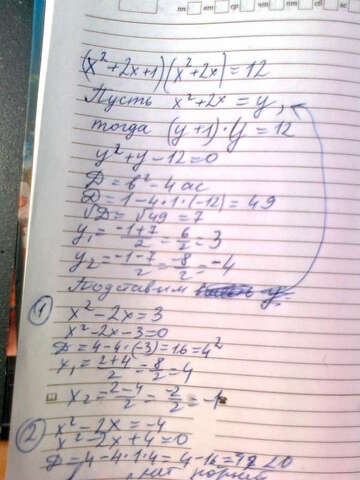 пн вт ср чт пт сб вс
(x²+2x+1)(x²+2x)=12
Пусть x²+2x=y,
тогда (y+1)·y=12
y²+y-12=0
D=b²-4ac
D=1-4·1·(-12)=49
√D=√49=7
y₁=\frac{-1+7}{2}=\frac{6}{2}=3
y₂=\frac{-1-7}{2}=\frac{-8}{2}=-4
Подставим y:
① x²-2x=3
x²-2x-3=0
D=4-4·(-3)=16=4²
x₁=\frac{2+4}{2}=\frac{8}{2}=4
x₂=\frac{2-4}{2}=\frac{-2}{2}=-1
② x²-2x=-4
x²-2x+4=0
D=4-4·1·4=4-16=
нет